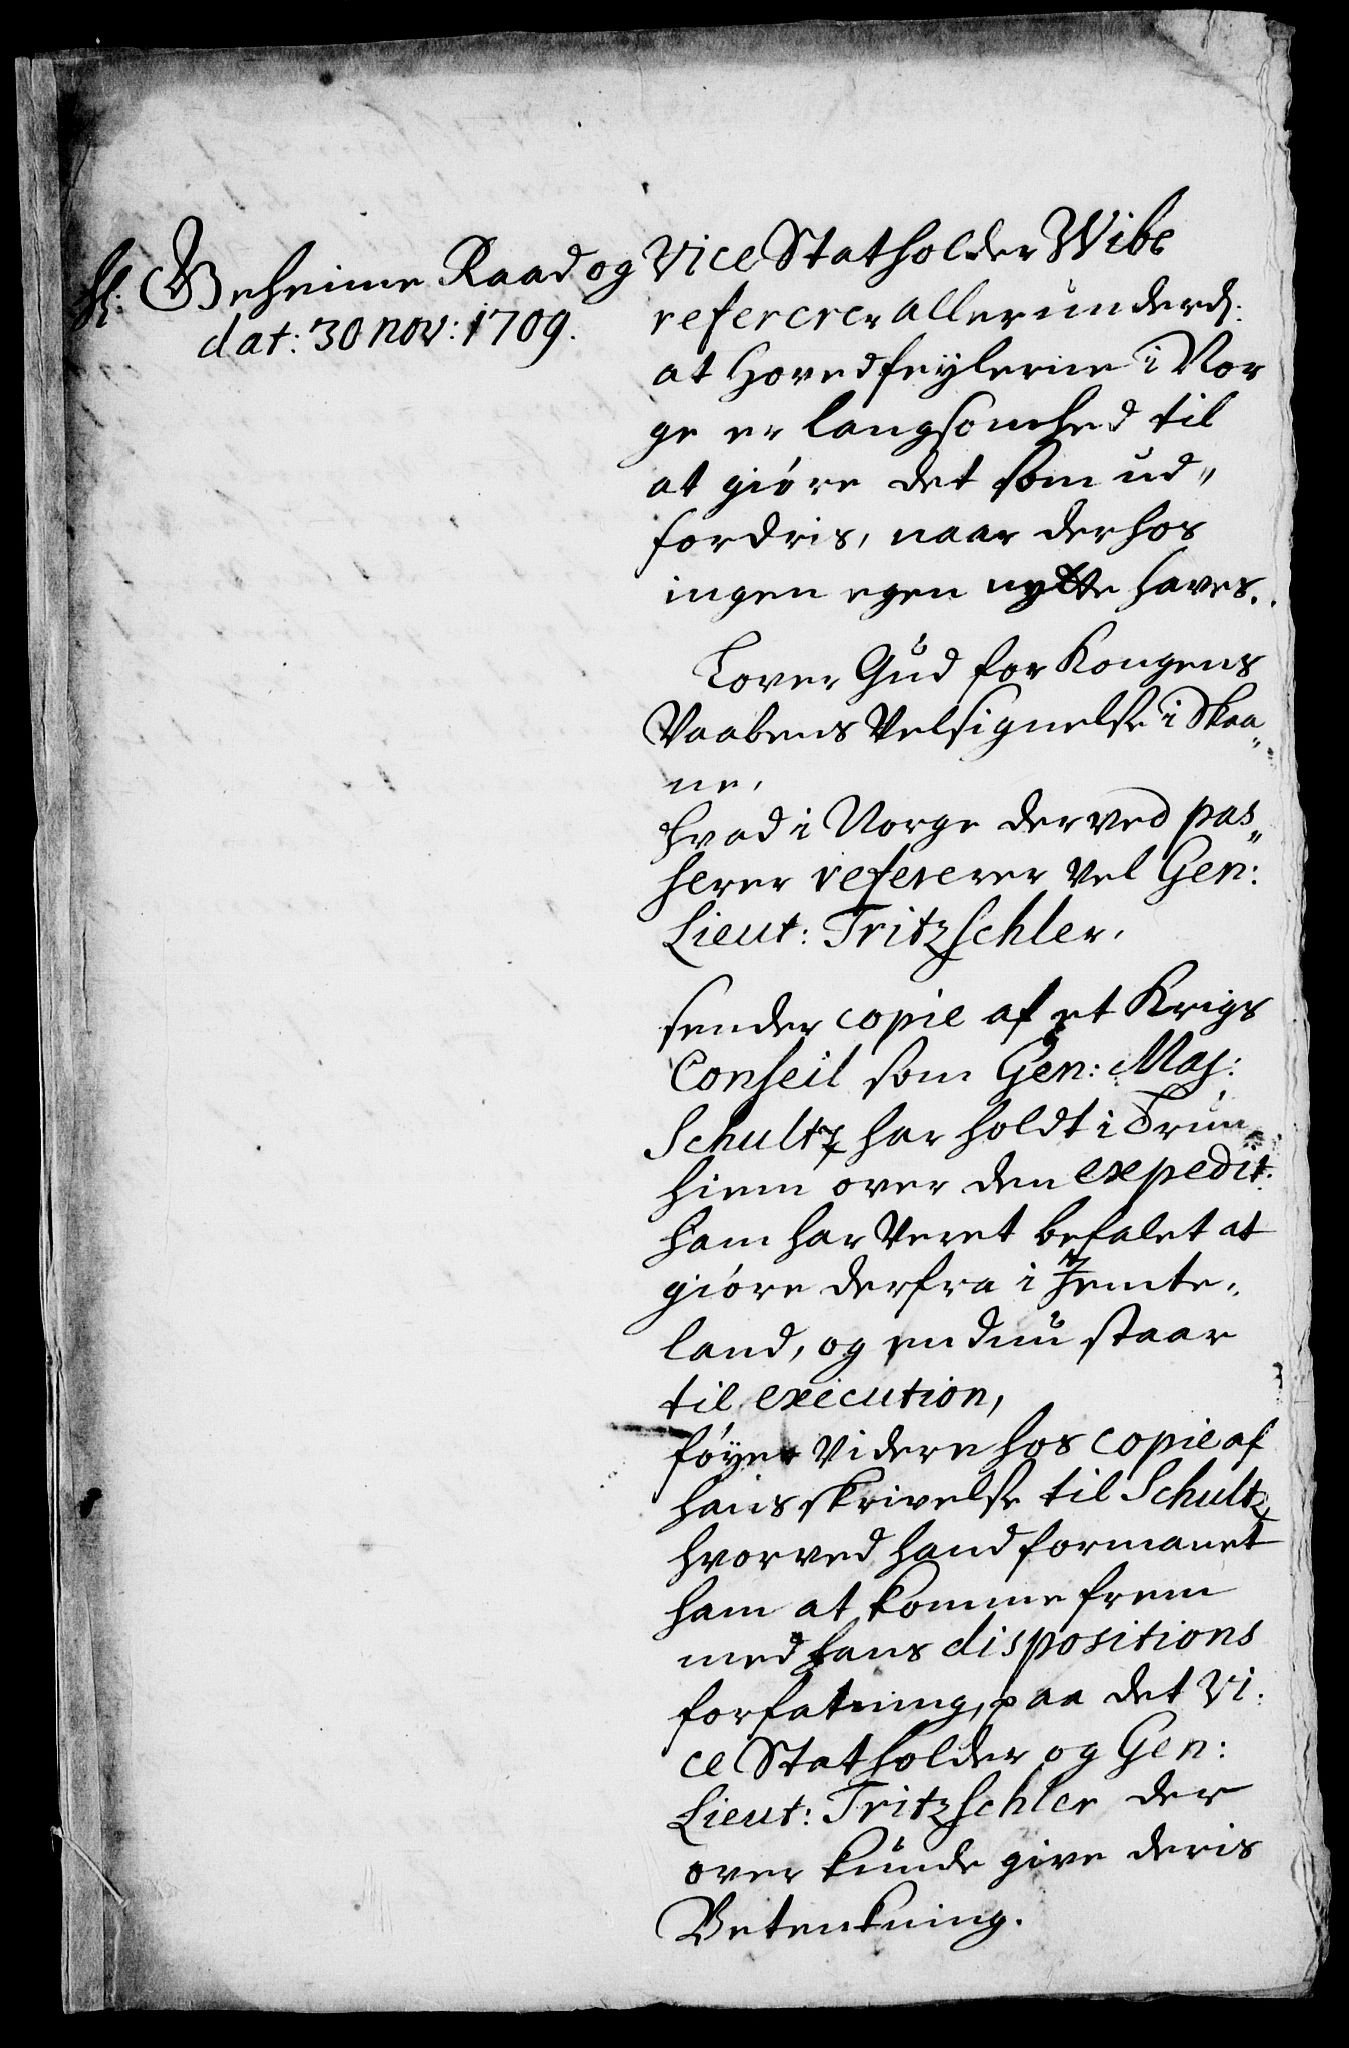 H: Geheime Raad og Vice Statholder Wibe
dat: 30 nov: 1709.
refererer allerunderd:
at Hovedfeylerne i Nor
ge er langsomhed til
at giöre det som ud„
fordris, naar derhos
ingen egen nytte haves.
Lover Gud for Kongens
Vaabens Velsignelse i Skaa„
ne,
hvad i Norge derved pas„
serer refererer vel Gen:
Lieut: Tritzschler.
sender copie af et Krigs
Conseil som Gen: Maj:
Schultz har holdt i Trun„
hiem over den expedit:
ham har veret befalet at
giöre derfra i Jemte„
land, og endnu staar
til execution,
föyer videre hos copie af
hans skrivelse til Schultz
hvorved hand formanet
ham at komme frem
med hans dispositions
forfatning, paa det Vi„
ce Statholder og Gen:
Lieut: Tritzschler der
over kunde give deris
Betenkning.